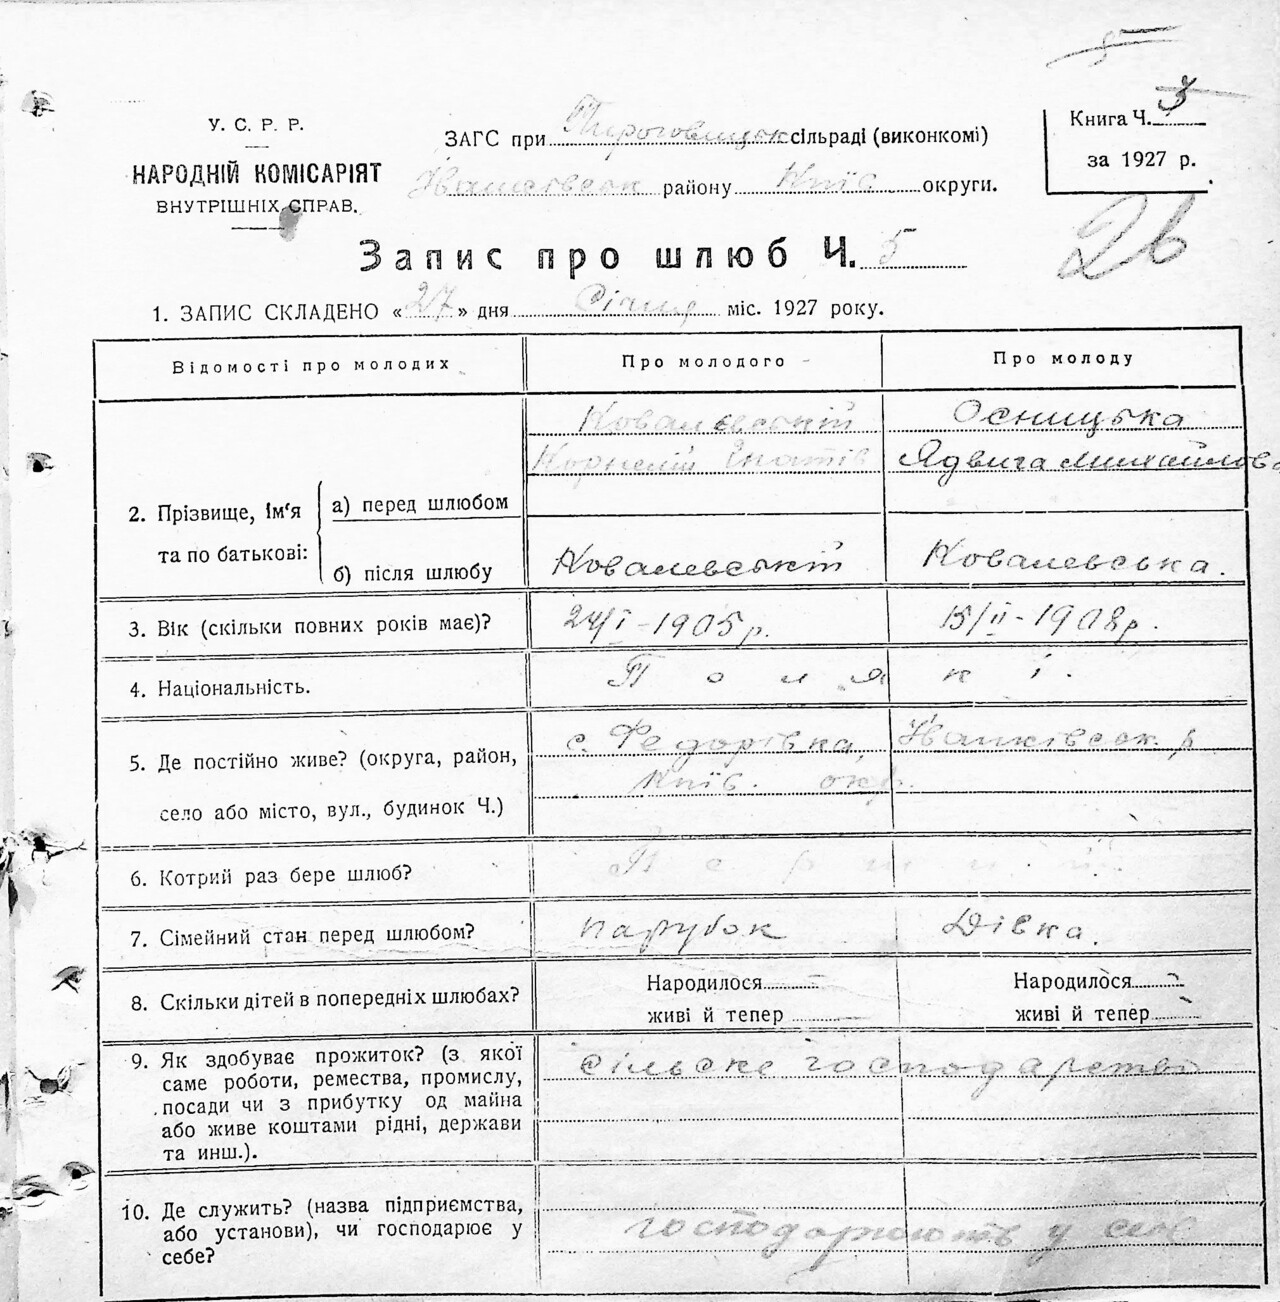 У. С. Р. Р.
НАРОДНІЙ КОМІСАРІЯТ
ВНУТРІШНІХ СПРАВ.
ЗАГС при Пироговицьк сільраді (виконкомі)
Іванківськ району Київ округи.
Книга Ч. 3
за 1927 р.
26
Запис про шлюб Ч. 5
1. ЗАПИС СКЛАДЕНО «27» дня Січня міс. 1927 року.
Відомості про молодих Про молодого Про молоду
2. Прізвище, ім'я та по батькові:
а) перед шлюбом Ковалєвській Осницька
Корнелій Гнатів Ядвига Михайлова
б) після шлюбу Ковалевській Ковалевська.
3. Вік (скільки повних років має)? 24/I-1905р. 15/II-1908р.
4. Національність. Поляки.
5. Де постійно живе? (округа, район, с. Федорівка, Іванківськ. р
село або місто, вул., будинок Ч.) Київ. окр.
6. Котрий раз бере шлюб? Перший
7. Сімейний стан перед шлюбом? парубок Дівка.
8. Скільки дітей в попередніх шлюбах? Народилося Народилося
живі й тепер живі й тепер
9. Як здобуває прожиток? (з якої сільське господарство
саме роботи, ремества, промислу,
посади чи з прибутку од майна
або живе коштами рідні, держави
та инш.).
10. Де служить? (назва підприємства,
або установи), чи господарює у господарюють у селі
себе?